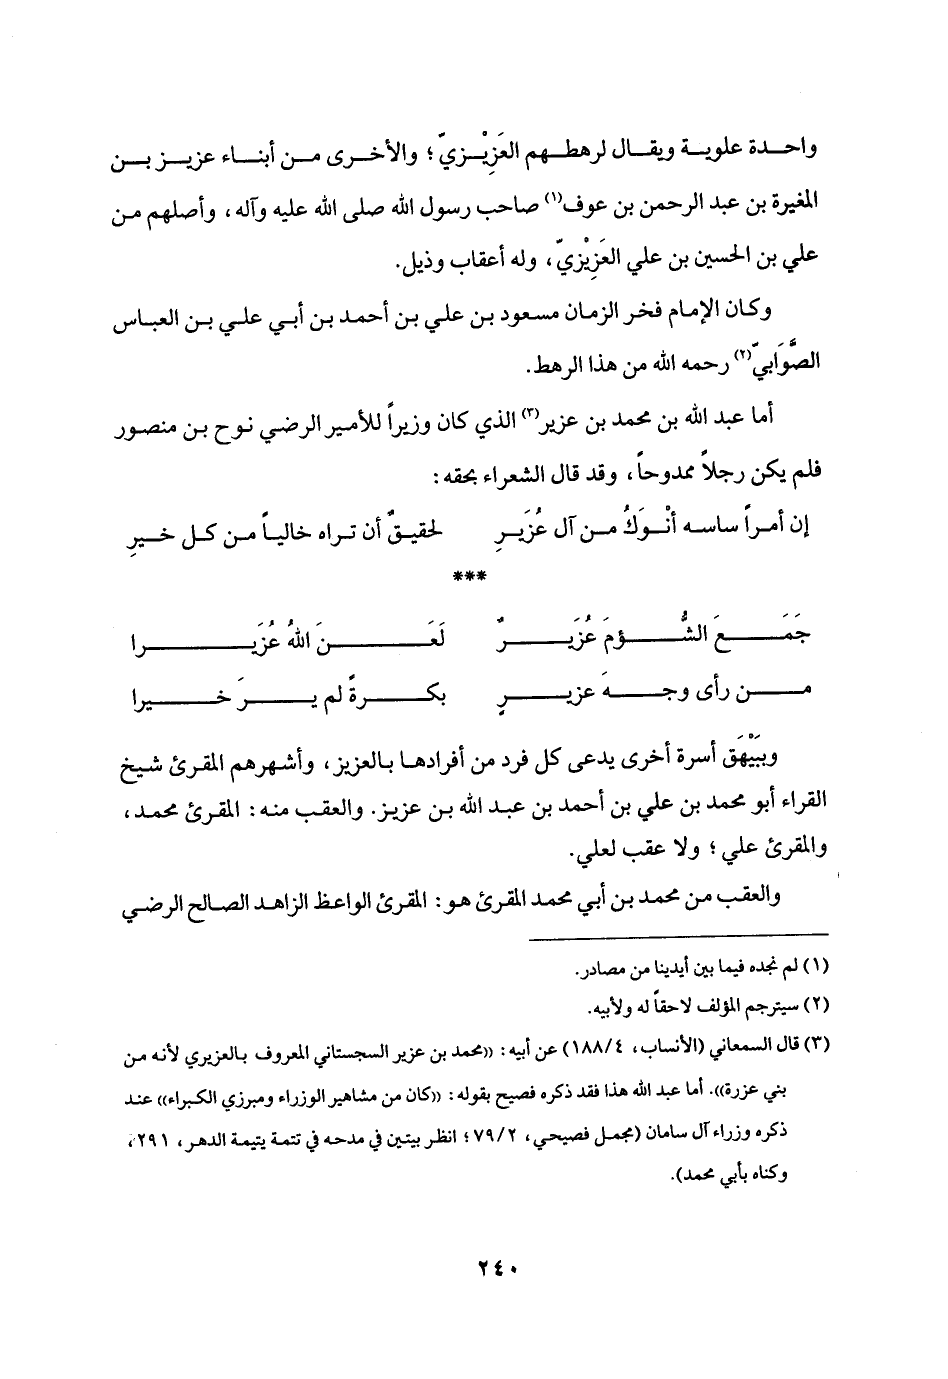 واحدة علوية ويقال لرهطهم العَزِيْزيّ؛ والأخرى من أبناء عزيز بن
المغيرة بن عبد الرحمن بن عوف(١) صاحب رسول الله صلى الله عليه وآله، وأصلهم من
علي بن الحسين بن علي العَزِيْزيّ، وله أعقاب وذيل.
وكان الإمام فخر الزمان مسعود بن علي بن أحمد بن أبي علي بن العباس
الصَّوَابيّ(٢) رحمه الله من هذا الرهط.
أما عبد الله بن محمد بن عزير(٣) الذي كان وزيراً للأمير الرضي نوح بن منصور
فلم يكن رجلاً ممدوحاً، وقد قال الشعراء بحقه:
إن أمراً ساسه أنْوَكُ من آل عُزَيرِ لحقيقٌ أن تراه خالياً من كل خيرِ
***
جَمَعَ الشُّؤمَ عُزَيرٌ لَعَنَ اللهُ عُزَيرا
من رأى وجهَ عزيرٍ بكرةً لم يرَ خيرا
وبَيْهَق أسرة أخرى يدعى كل فرد من أفرادها بالعزيز، وأشهرهم المقرئ شيخ
القراء أبو محمد بن علي بن أحمد بن عبد الله بن عزيز. والعقب منه: المقرئ محمد،
والمقرئ علي؛ ولا عقب لعلي.
والعقب من محمد بن أبي محمد المقرئ هو: المقرئ الواعظ الزاهد الصالح الرضي
(١) لم نجده فيما بين أيدينا من مصادر.
(٢) سيترجم المؤلف لاحقاً له ولأبيه.
(٣) قال السمعاني (الأنساب، ١٨٨/٤) عن أبيه: ((محمد بن عزير السجستاني المعروف بالعزيري لأنه من
بني عزرة)). أما عبد الله هذا فقد ذكره فصيح بقوله: ((كان من مشاهير الوزراء ومبرزي الكبراء)) عند
ذكره وزراء آل سامان (مجمل فصيحي، ٧٩/٢؛ انظر بيتين في مدحه في تتمة يتيمة الدهر، ٢٩١،
وكناه بأبي محمد).
٢٤٠